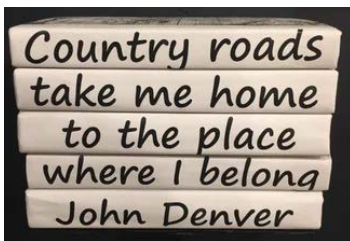 Country roads
take me home
to the place
where I belong
John Denver